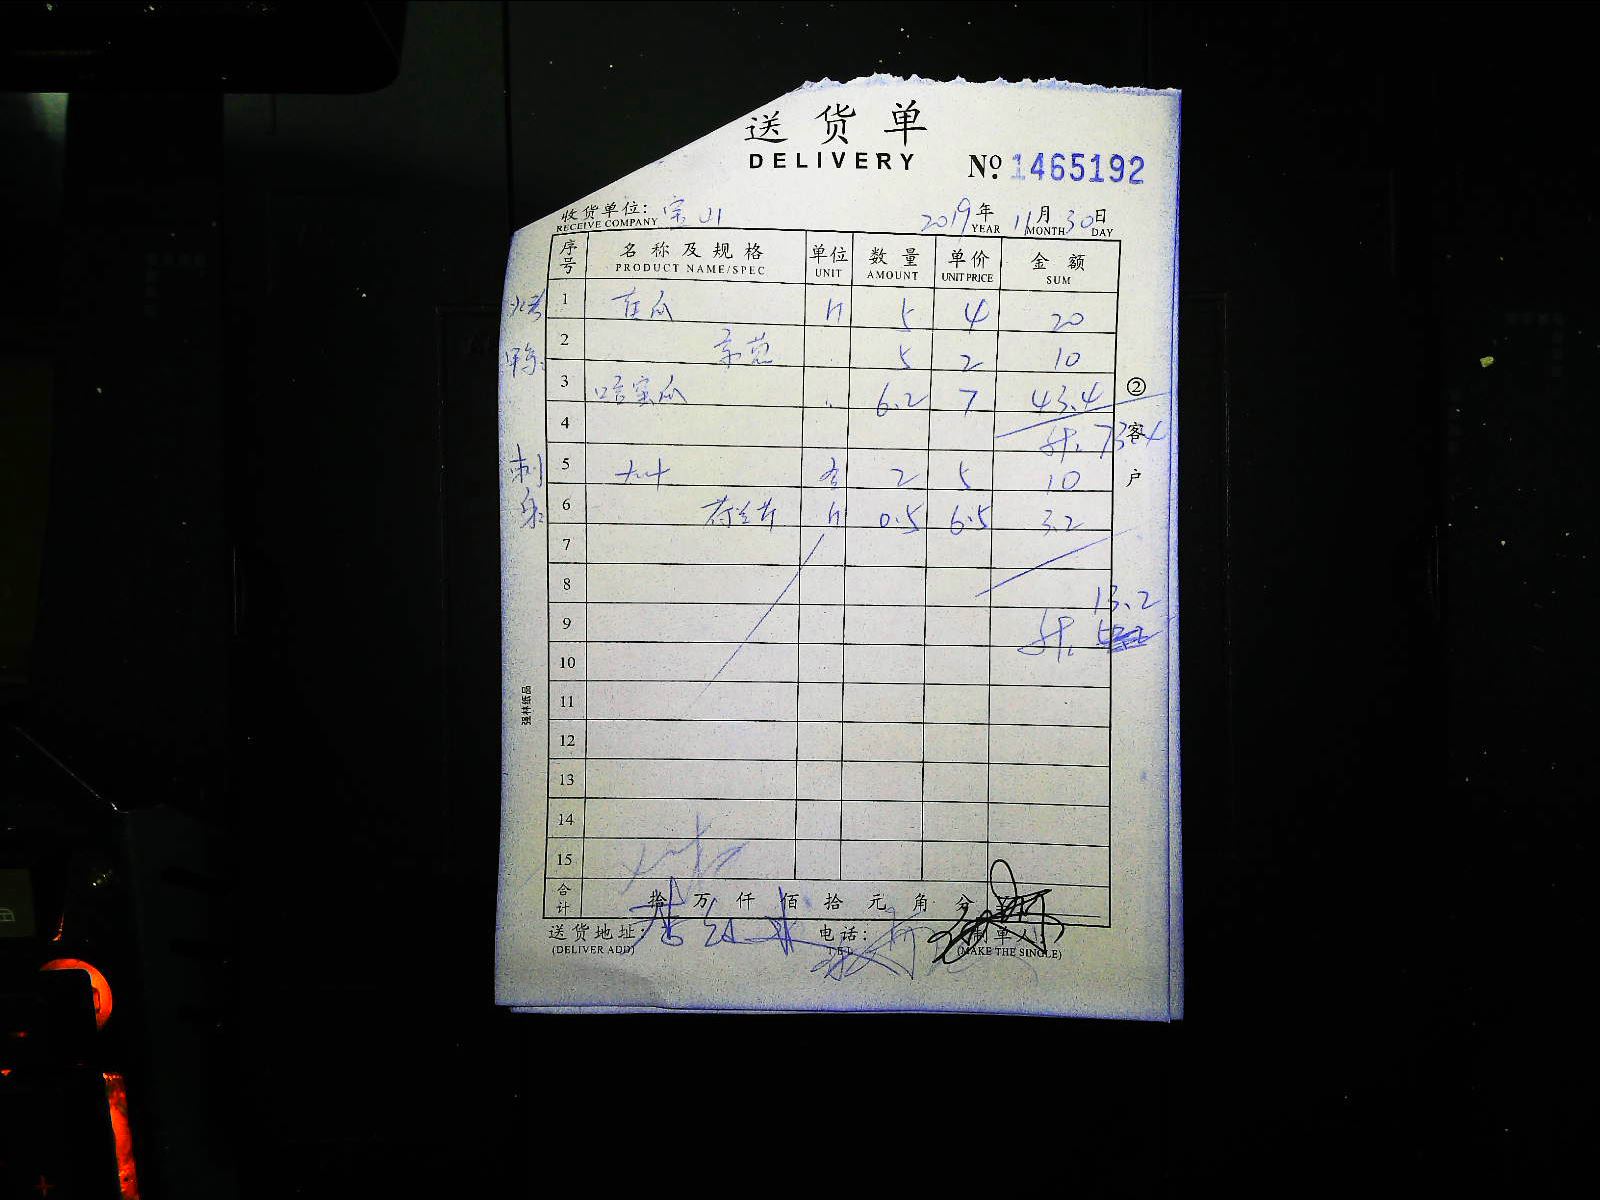 送货单
DELIVERY
№ 1465192
收货单位: 宝川 2019年 11月 30日
RECEIVE COMPANY YEAR MONTH DAY
序号 名称及规格 单位 数量 单价 金额
PRODUCT NAME/SPEC UNIT AMOUNT UNIT PRICE SUM
1 斤 5 4 20
2 5 2 10
3 哈密瓜 6.2 7 43.4
4 计: 73.4
5 2 5 10
6 斤 0.5 6.5 3.2
7
8 13.2
9 计:
10
11
12
13
14
15
合计 拾 万 仟 佰 拾 元 角 分
送货地址: 电话: 制单人:
(DELIVER ADD) TEL (MAKE THE SINGLE)
②客户
鸭:
刺身:
强林纸品